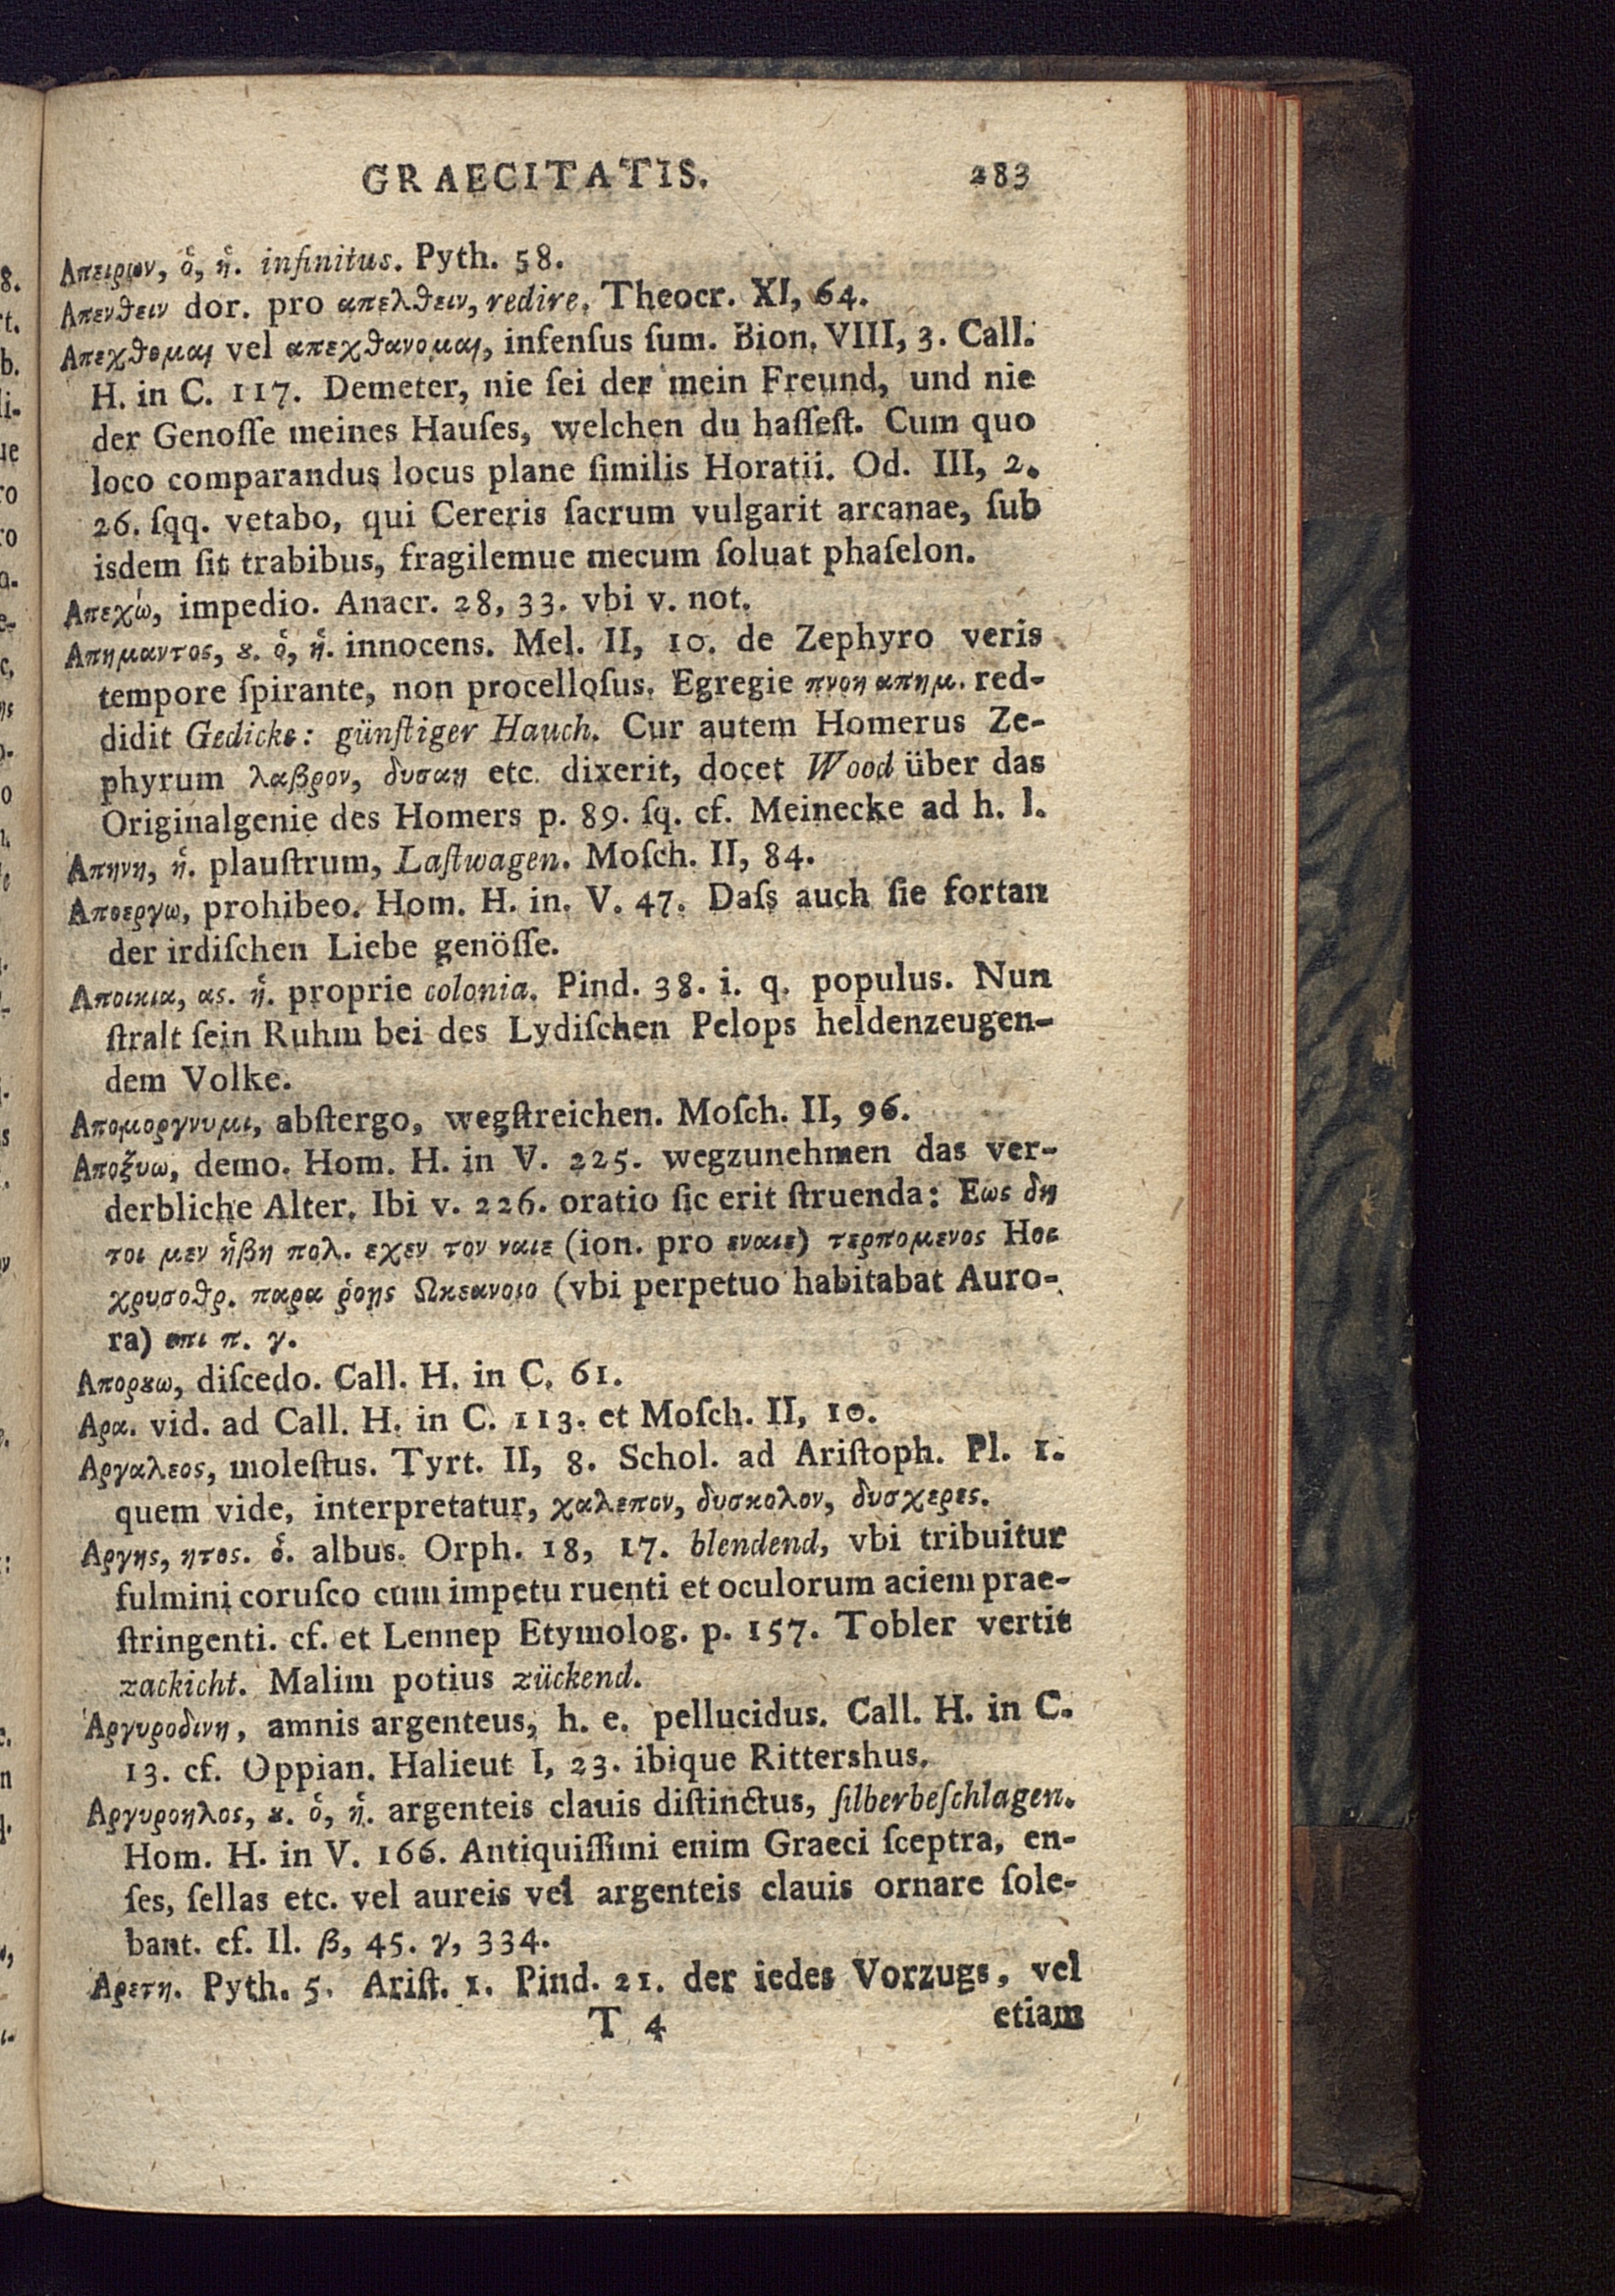 GRAECITATIS. 283
Απειρων, ὁ, ἡ. infinitus. Pyth. 58.
Απενθειν dor. pro απελθειν, redire. Theocr. XI, 64.
Απεχθομαι vel απεχθανομαι, infenſus ſum. Bion. VIII, 3. Call.
H. in C. 117. Demeter, nie ſei der mein Freund, und nie
der Genoſſe meines Hauſes, welchen du haſſeſt. Cum quo
loco comparandus locus plane ſimilis Horatii. Od. III, 2.
26. ſqq. vetabo, qui Cereris ſacrum vulgarit arcanae, ſub
isdem ſit trabibus, fragilemue mecum ſoluat phaſelon.
Απεχώ, impedio. Anacr. 28, 33. vbi v. not.
Απημαντος, ȣ. ὁ, ἡ. innocens. Mel. II, 10. de Zephyro veris
tempore ſpirante, non procelloſus. Egregie πνοη απημ. red-
didit Gedicke: günſtiger Hauch. Cur autem Homerus Ze-
phyrum λαβρον, δυσαη etc. dixerit, docet Wood über das
Originalgenie des Homers p. 89. ſq. cf. Meinecke ad h. l.
Απηνη, ἡ. plauſtrum, Laſtwagen. Moſch. II, 84.
Αποεργω, prohibeo. Hom. H. in. V. 47. Daſs auch ſie fortan
der irdiſchen Liebe genöſſe.
Αποικια, ας. ἡ. proprie colonia. Pind. 38. i. q. populus. Nun
ſtralt ſein Ruhm bei des Lydiſchen Pelops heldenzeugen-
dem Volke.
Απομοργνυμι, abſtergo, wegſtreichen. Moſch. II, 96.
Αποξυω, demo. Hom. H. in V. 225. wegzunehmen das ver-
derbliche Alter. Ibi v. 226. oratio ſic erit ſtruenda: Εως δη
τοι μεν ἡβη πολ. εχεν τον ναιε (ion. pro εναιε) τερπομενος Ηοε
χρυσοθρ. παρα ῥοης Ωκεανοιο (vbi perpetuo habitabat Auro-
ra) επι π. γ.
Απορȣω, diſcedo. Call. H. in C. 61.
Αρα. vid. ad Call. H. in C. 113. et Moſch. II, 10.
Αργαλεος, moleſtus. Tyrt. II, 8. Schol. ad Ariſtoph. Pl. 1.
quem vide, interpretatur, χαλεπον, δυσκολον, δυσχερες.
Αργης, ητος. ὁ. albus. Orph. 18, 17. blendend, vbi tribuitur
fulmini coruſco cum impetu ruenti et oculorum aciem prae-
ſtringenti. cf. et Lennep Etymolog. p. 157. Tobler vertit
zackicht. Malim potius zückend.
Αργυροδινη, amnis argenteus, h. e. pellucidus. Call. H. in C.
13. cf. Oppian. Halieut I, 23. ibique Rittershus.
Αργυροηλος, ȣ. ὁ, ἡ. argenteis clauis diſtinctus, ſilberbeſchlagen.
Hom. H. in V. 166. Antiquiſſimi enim Graeci ſceptra, en-
ſes, ſellas etc. vel aureis vel argenteis clauis ornare ſole-
bant. cf. Il. β, 45. γ, 334.
Αρετη. Pyth. 5. Ariſt. 1. Pind. 21. der iedes Vorzugs, vel
T 4 etiam